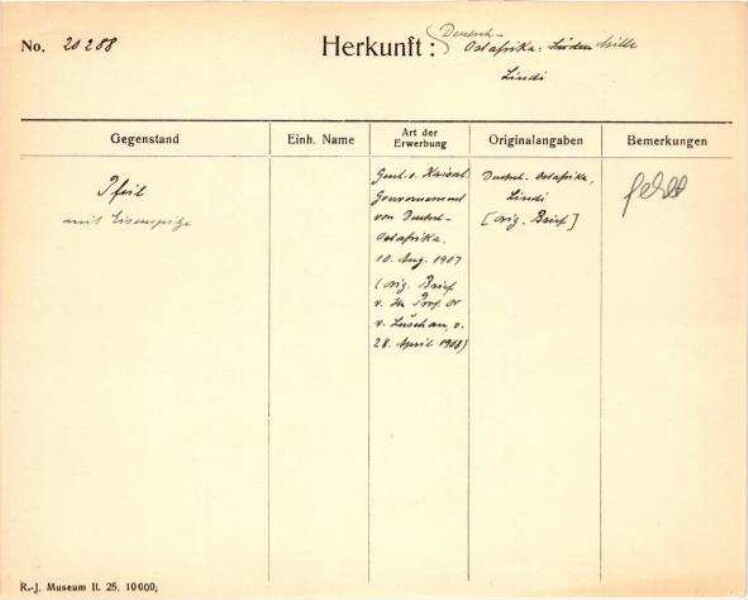 No. 20288
Herkunft: Deutsch-
Ostafrika: Süden Mitte
Lindi
Gegenstand
Einh. Name
Art der
Erwerbung
Originalangaben
Bemerkungen
Pfeil
mit Eisenspitze
Gesch. v. Kaiserl.
Gouvernement
von Deutsch-
Ostafrika.
10. Aug. 1907
(orig. Brief
v. H. Prof. Dr
v. Luschan, v.
28. April 1908)
Deutsch. Ostafrika,
Lindi
[orig. Brief]
fehlt
R.-J. Museum II. 25. 10000;